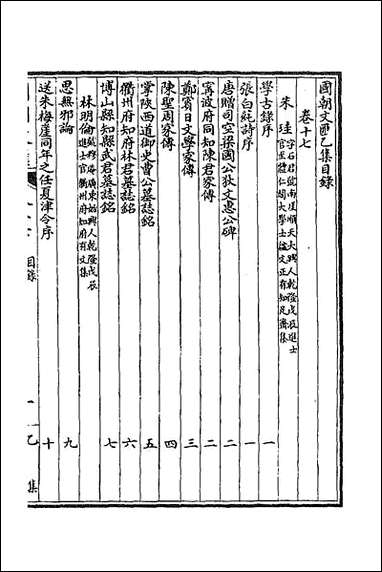 國朝文匯乙集目錄
卷十七
朱珪 字石君號南崖順天大興人乾隆戊辰進士官至體仁閣大學士諡文正有知足齋集
學古錄序 一
張白蒓詩序 一
唐贈司空梁國公狄文惠公碑 二
寗波府同知陳君家傳 二
鄭賓日文學家傳 三
陳聖周家傳 四
掌陝西道御史曹公墓誌銘 五
衢州府知府林君墓誌銘 六
博山縣知縣武君墓誌銘 七
林明倫 號穆庵廣東始興人乾隆戊辰進士官衢州府知府有文集
思無邪論 九
送朱梅崖同年之任夏津令序 十
目錄
一
乙集